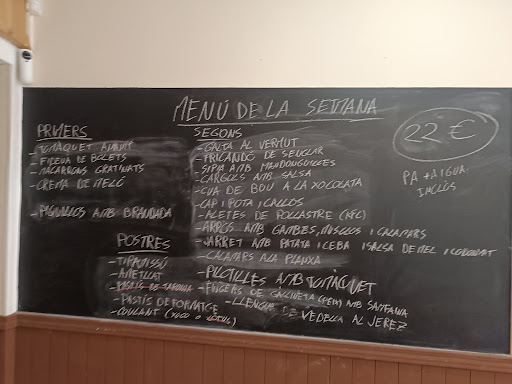 MENÚ DE LA SETMANA
PRIMERS
- FIDEUA DE BOLETS
- MACARRONS GRATINATS
- CREMA DE MELÓ
- PIQUILLOS AMB BRANDADA
SEGONS
- GALTA AL VERMUT
- FRICANDÓ DE SENGLAR
- SIPIA AMB MANDONGUILLES
- CARGOLS AMB SALSA
- CUA DE BOU A LA XOCOLATA
- CAP I POTA I CALLOS
- ALETES DE POLLASTRE (KFC)
- ARROS AMB GAMBES, MUSCLOS I CALAMARS
- JARRET AMB PATATA I CEBA I SALSA DE MEL I
- CALAMARS A LA PLANXA
- PILOTILLES AMB
- FINGERS DE GALLINETA AMB SAMFAINA
- LLENGUA DE VEDELLA AL JEREZ
POSTRES
- TIRAMISSÚ
- AMETLLAT
- PASTÍS DE TARONJA
- PASTÍS DE FORMATGE
- COULANT (XOCO O LOTUS)
22 €
PA + AIGUA
INCLÒS